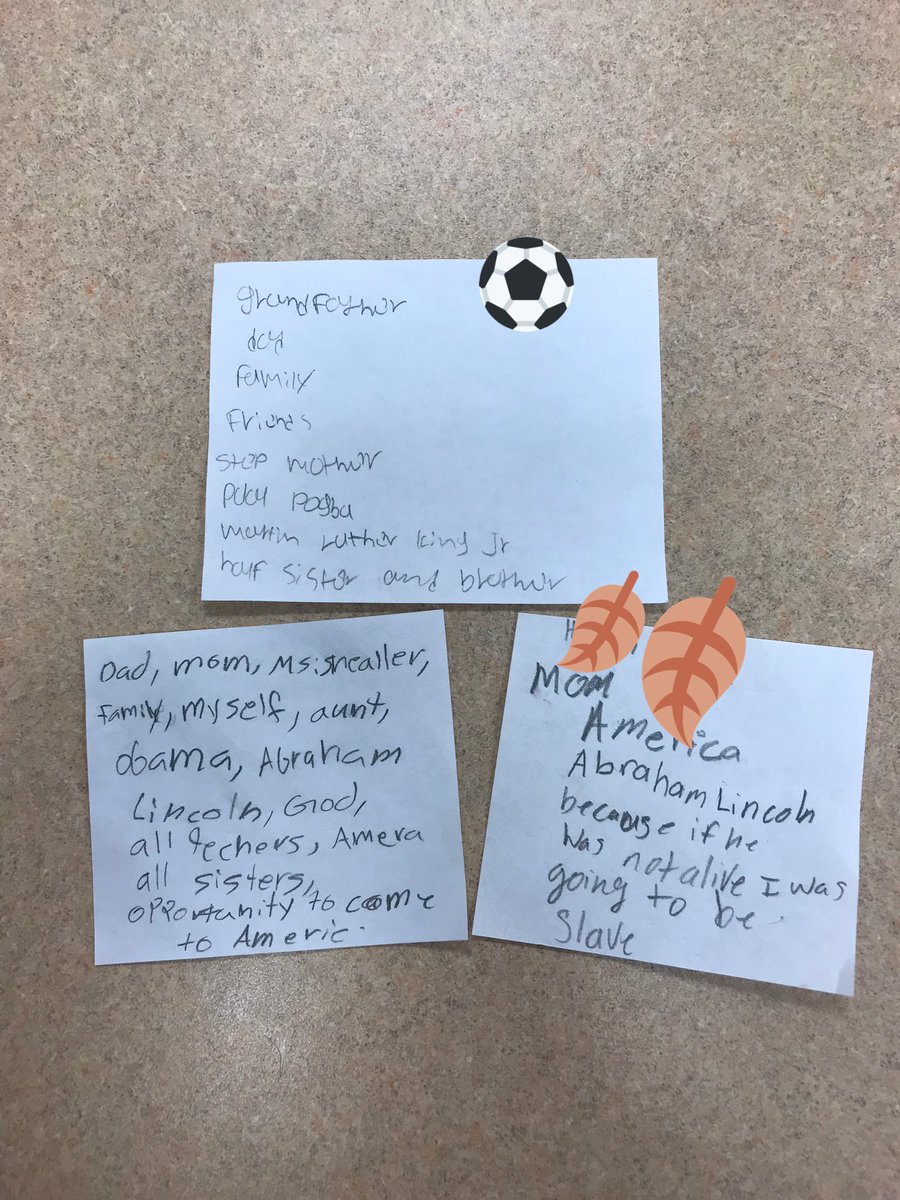 grandfathur
dad
family
Friends
Stop mothur
Pogba
martin luthir king Jr
half sister and brethur
Dad, mom,
family, myself, aunt,
obama, Abraham
Lincoln, God,
all techers, Amera
all sisters,
opportunity to come
to Americ.
Mom
America
Abraham Lincoln
because if he
was not alive I was
going to be
Slave